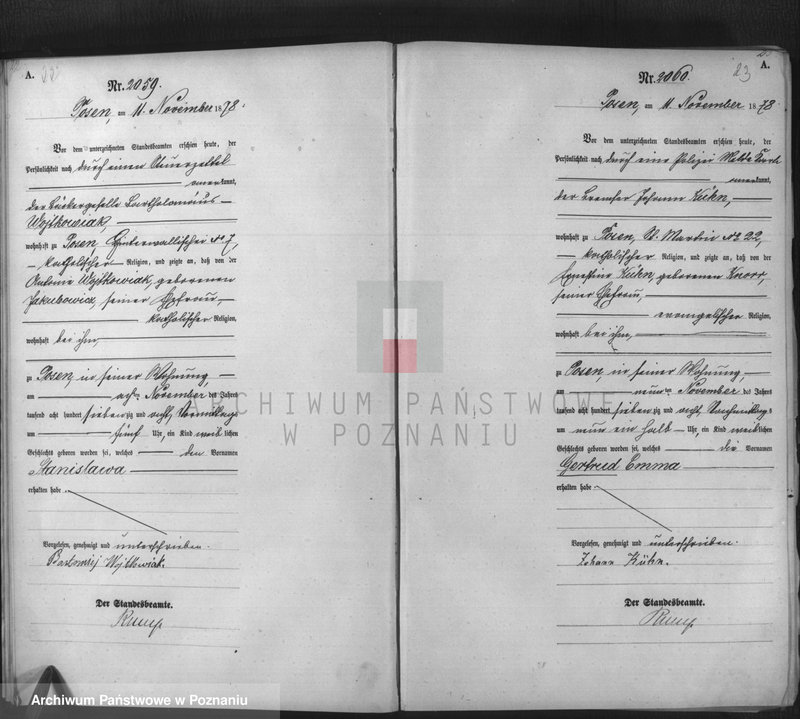 A.
Nr. 2059.
Posen, am 11. November 1878.
Vor dem unterzeichneten Standesbeamten erschien heute, der
Persönlichkeit nach durch einen Steuerzettel
anerkannt,
der Bäckergeselle Bartholomäus
Wojtkowiak,
wohnhaft zu Posen Hinterwallischei No 7,
katholischer Religion, und zeigte an, daß von der
Antonie Wojtkowiak, geborenen
Jakubowicz, seiner Ehefrau,
katholischer Religion,
wohnhaft bei ihm,
zu Posen, in seiner Wohnung,
am acht November des Jahres
tausend acht hundert siebenzig und acht Vormittags
um fünf Uhr, ein Kind weiblichen
Geschlechts geboren worden sei, welches den Vornamen
Stanislawa
erhalten habe
Vorgelesen, genehmigt und unterschrieben.
Bartłomiej Wojtkowiak.
Der Standesbeamte.
Archiwum Państwowe w Poznaniu
23
A.
Nr. 2060.
Posen, am 11. November 1878.
Vor dem unterzeichneten Standesbeamten erschien heute, der
Persönlichkeit nach durch eine Polizei Karte
anerkannt,
der Johann Kühn,
wohnhaft zu Posen, St. Martin No 22,
katholischer Religion, und zeigte an, daß von der
Ernestine Kühn, geborenen Knorr,
seiner Ehefrau,
evangelischer Religion,
wohnhaft bei ihm,
zu Posen, in seiner Wohnung,
am neunten November des Jahres
tausend acht hundert siebenzig und acht Nachmittags
um neun ein halb Uhr, ein Kind weiblichen
Geschlechts geboren worden sei, welches die Vornamen
Gertrud Emma
erhalten habe
Vorgelesen, genehmigt und unterschrieben.
Johann Kühn.
Der Standesbeamte.
ARCHIWUM PAŃSTWOWE
W POZNANIU